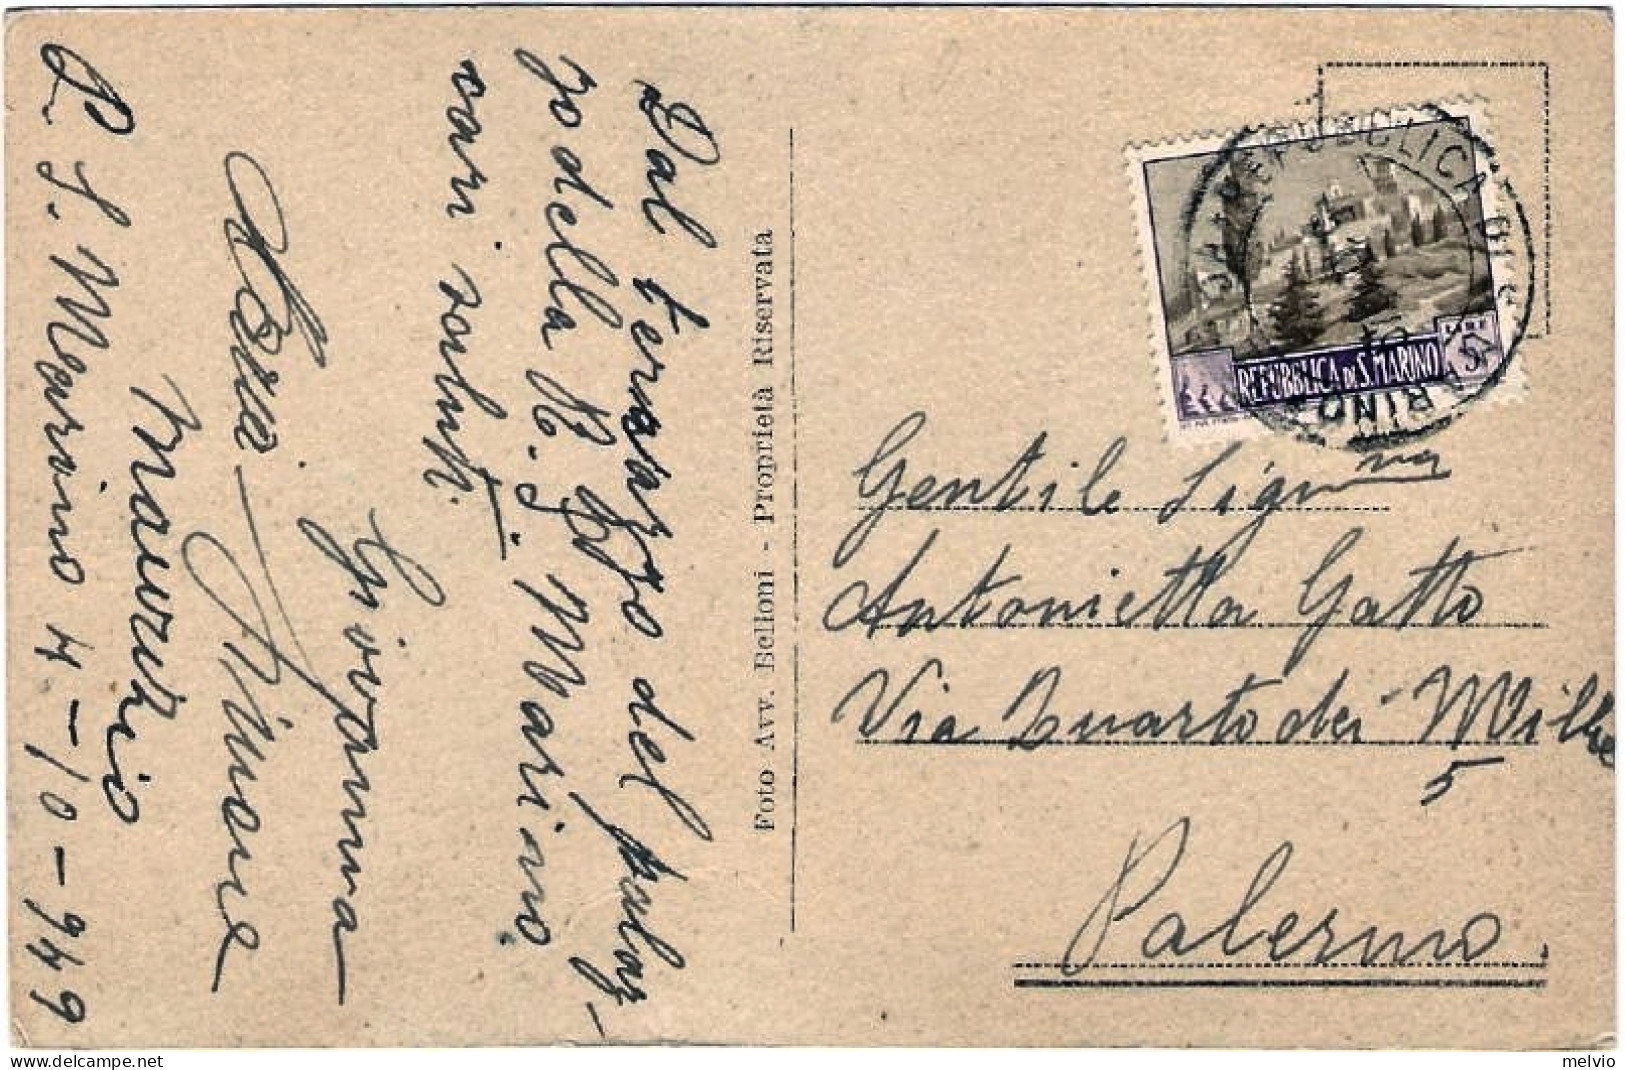 Dal terrazzo del palaz-
zo della R. di S. Marino
cari saluti.
Giovanna
Maurizio
R. S. Marino 4-10-949
Foto Avv. Belloni - Proprietà Riservata
REPUBBLICA DI S. MARINO
LIRE
5
REPUBBLICA DI S. MARINO
REPUBBLICA DI S. MARINO
Gentile Sig.na
Antonietta Gatto
Via Quarto dei Mille
5
Palermo
melvio